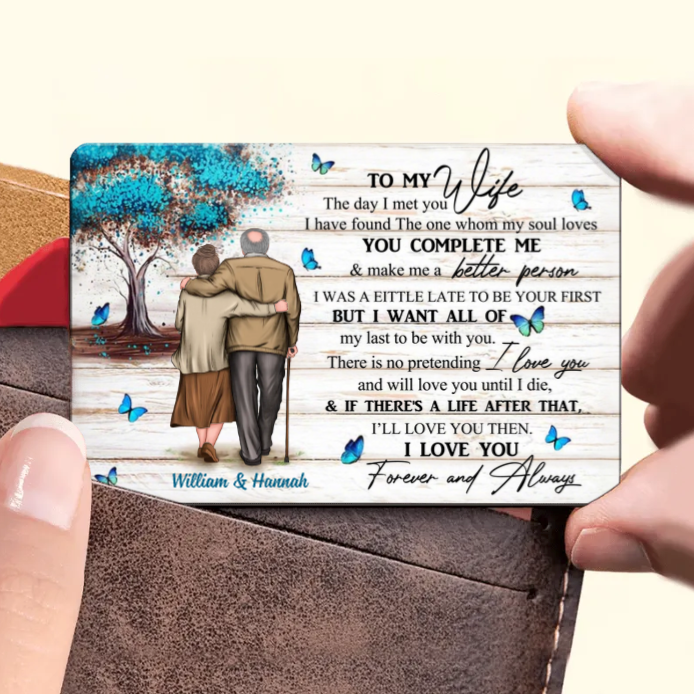 TO MY Wife
The day I met you
I have found The one whom my soul loves
YOU COMPLETE ME
& make me a better person
I WAS A EITTLE LATE TO BE YOUR FIRST
BUT I WANT ALL OF
my last to be with you.
There is no pretending I love you
and will love you until I die,
& IF THERE'S A LIFE AFTER THAT,
I'LL LOVE YOU THEN.
I LOVE YOU
Forever and Always
William & Hannah